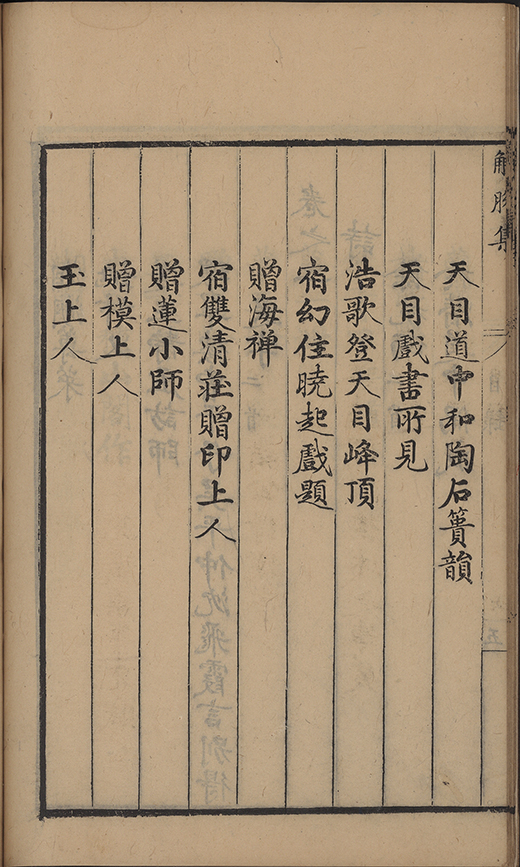 解脫集
天目道中和陶石簣韻
天目戲書所見
浩歌登天目峰頂
宿幻住曉起戲題
贈海禅
宿雙清莊贈印上人
贈蓮小師
贈模上人
玉上人